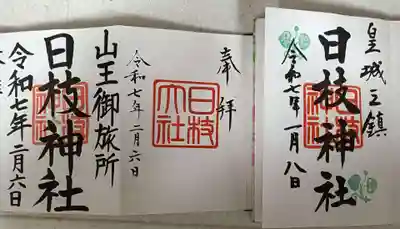 皇城之鎮
日枝神社
令和七年一月八日
奉拝
日枝
大社
令和七年二月六日
山王御旅所
日枝神社
令和七年二月六日